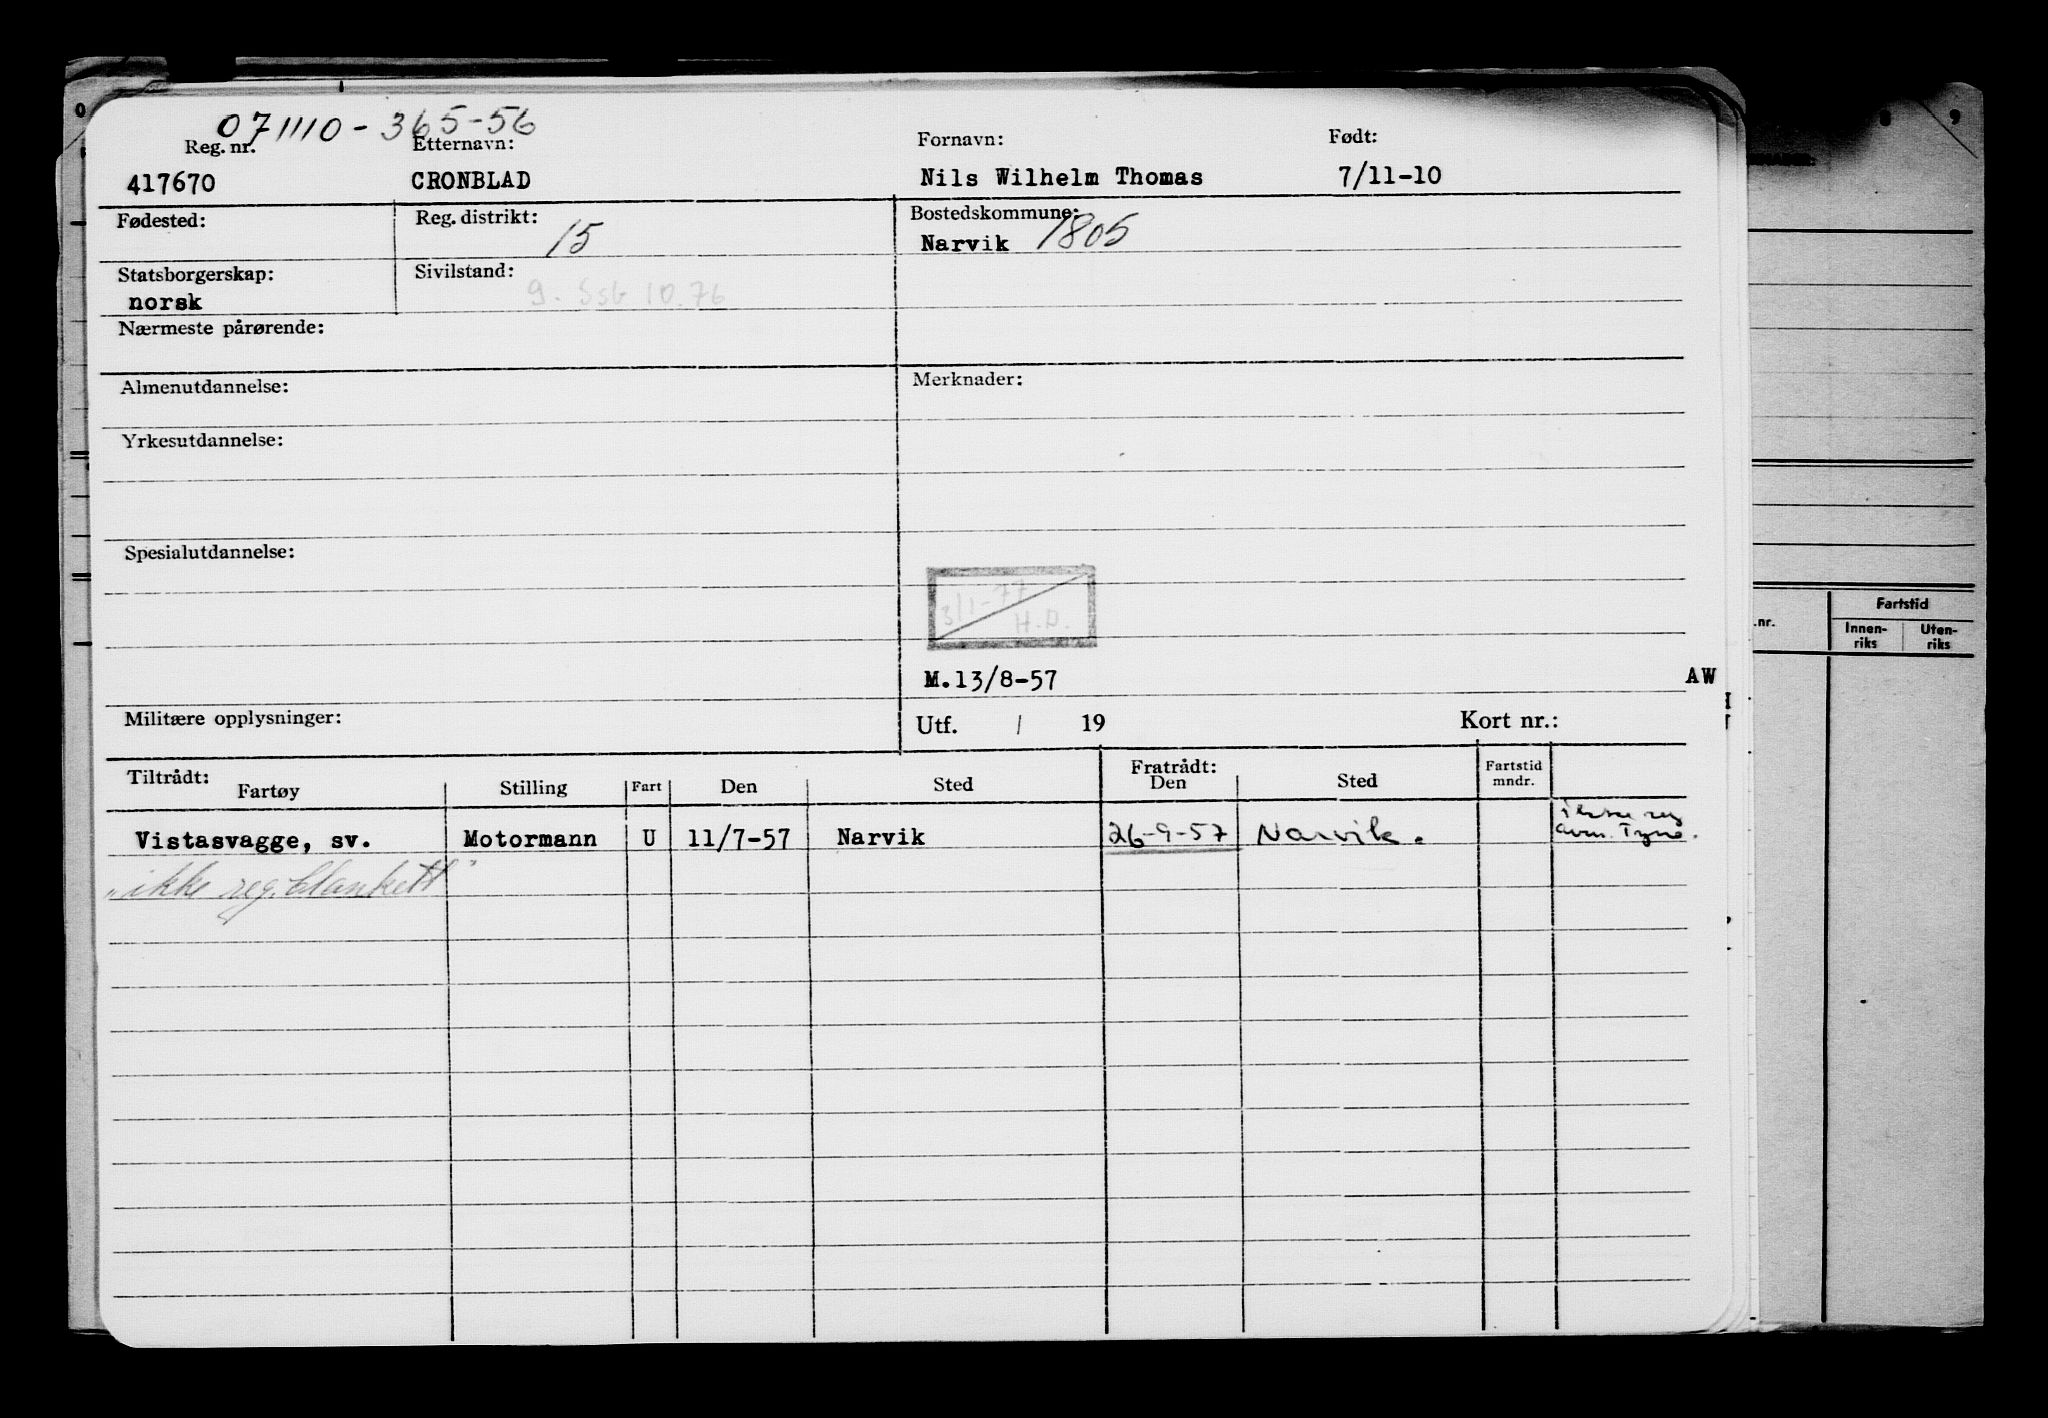 071110-365-56
Reg. nr. Etternavn: Fornavn: Født:
417670 CRONBLAD Nils Wilhelm Thomas 7/11-10
Fødested: Reg. distrikt: 15 Bostedskommune:
Narvik 1805
Statsborgerskap: Sivilstand:
norsk 9. Ssb 10.76
Nærmeste pårørende:
Almenutdannelse: Merknader:
Yrkesutdannelse:
Spesialutdannelse:
3/1-77
H.D.
M.13/8-57 AW
Militære opplysninger: Utf. / 19 Kort nr.:
Tiltrådt: Fratrådt:
Fartøy Stilling Fart Den Sted Den Sted Fartstid mndr.
Vistasvagge, sv. Motormann U 11/7-57 Narvik 26-9-57 Narvik. ikke reg
"ikke reg. blankett"
8 9
.nr. Fartstid
Innen-riks Uten-riks